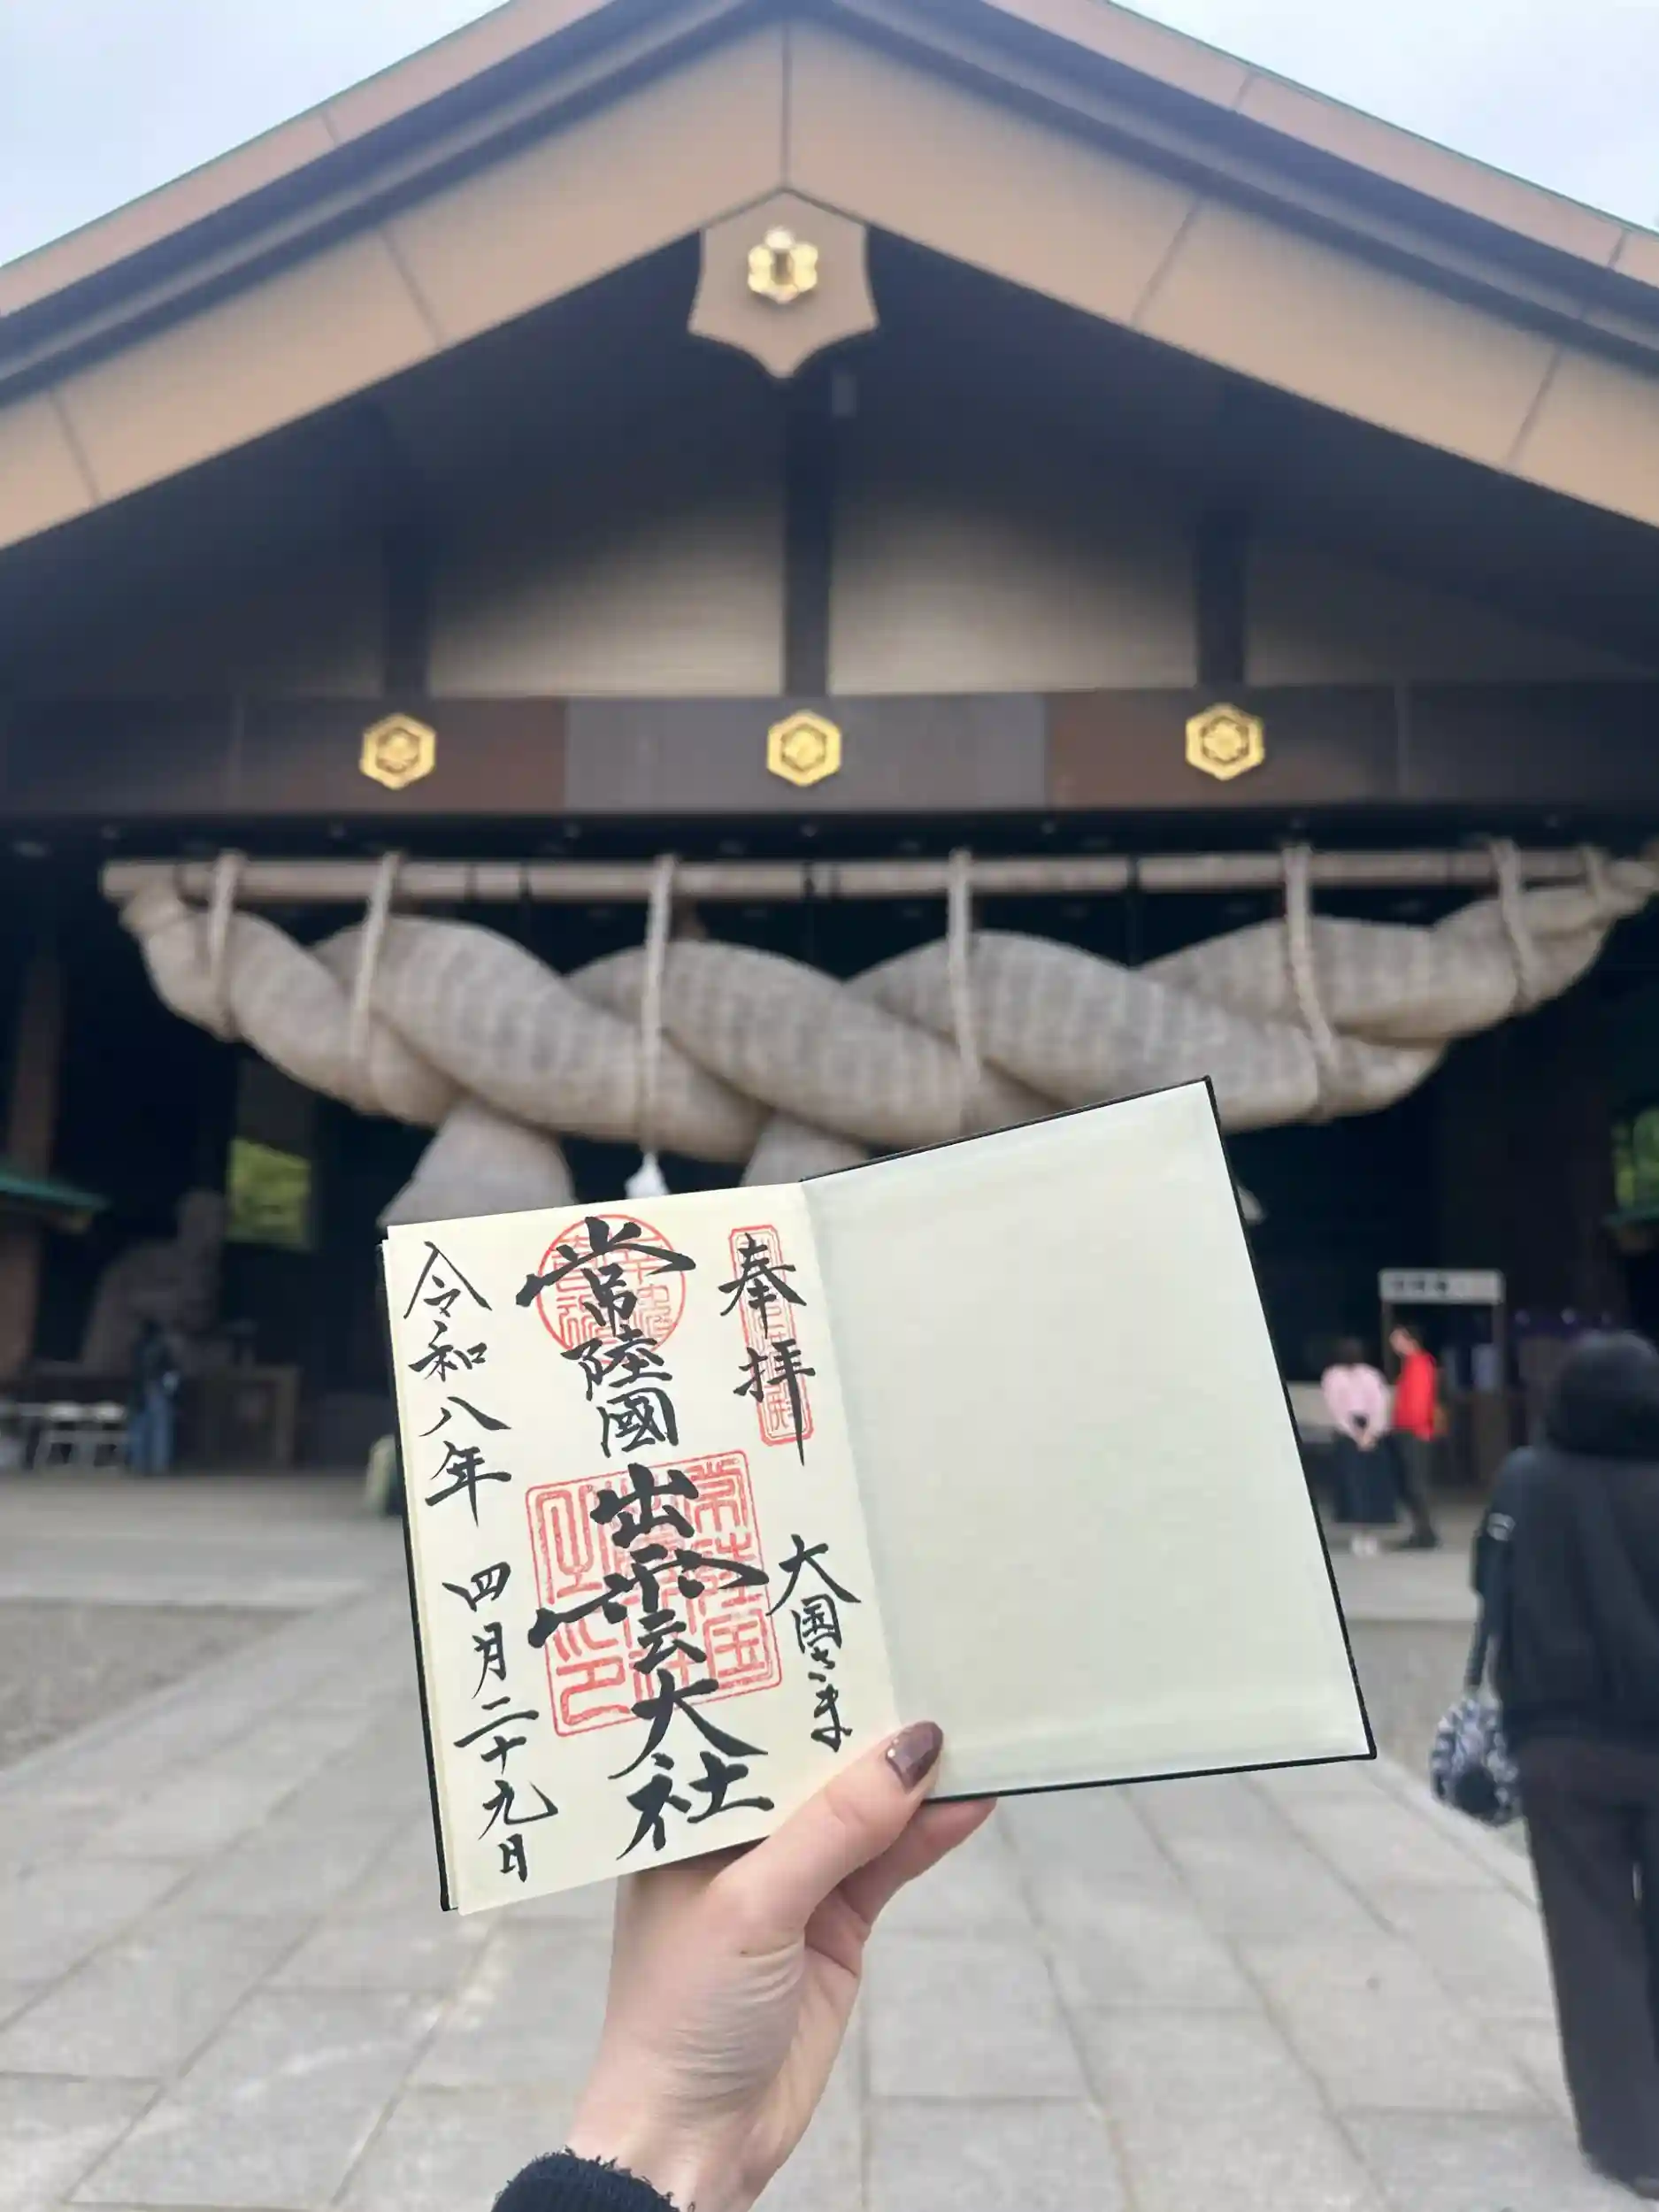 奉拝
大国さま
常陸國
出雲大社
令和八年
四月二十九日